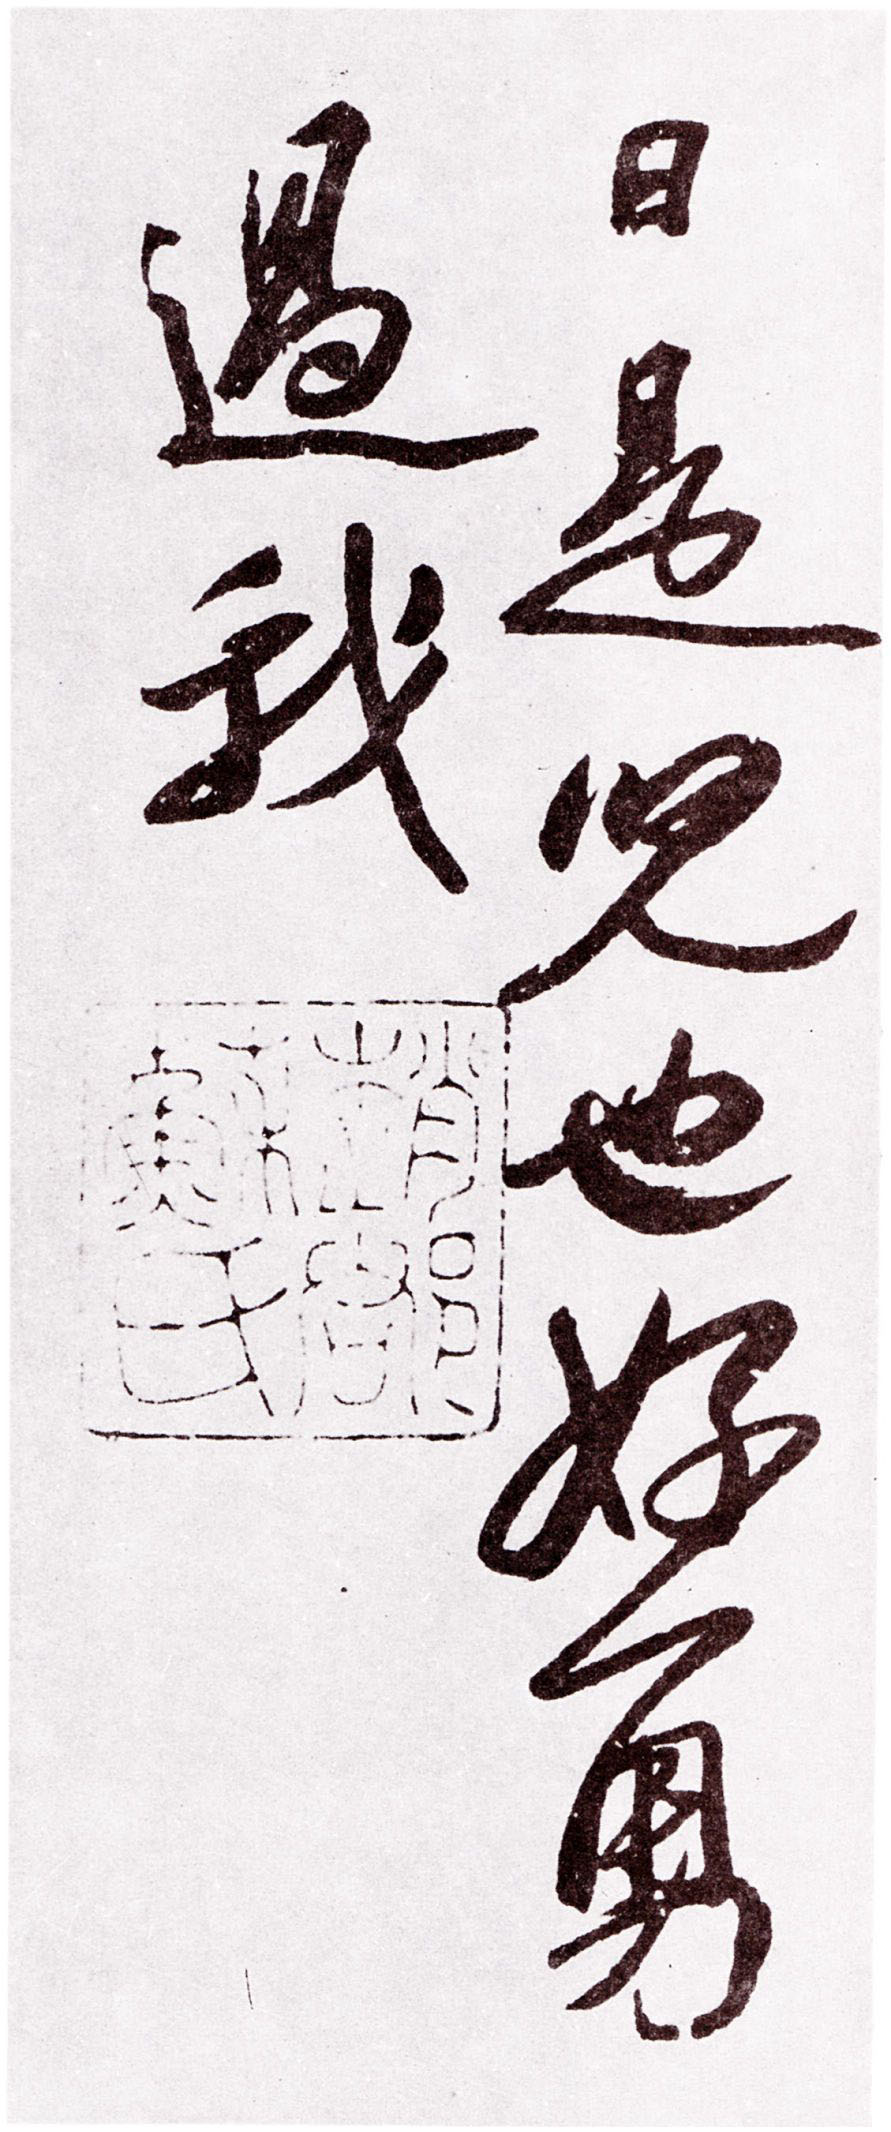 日是兒也好勇
過我